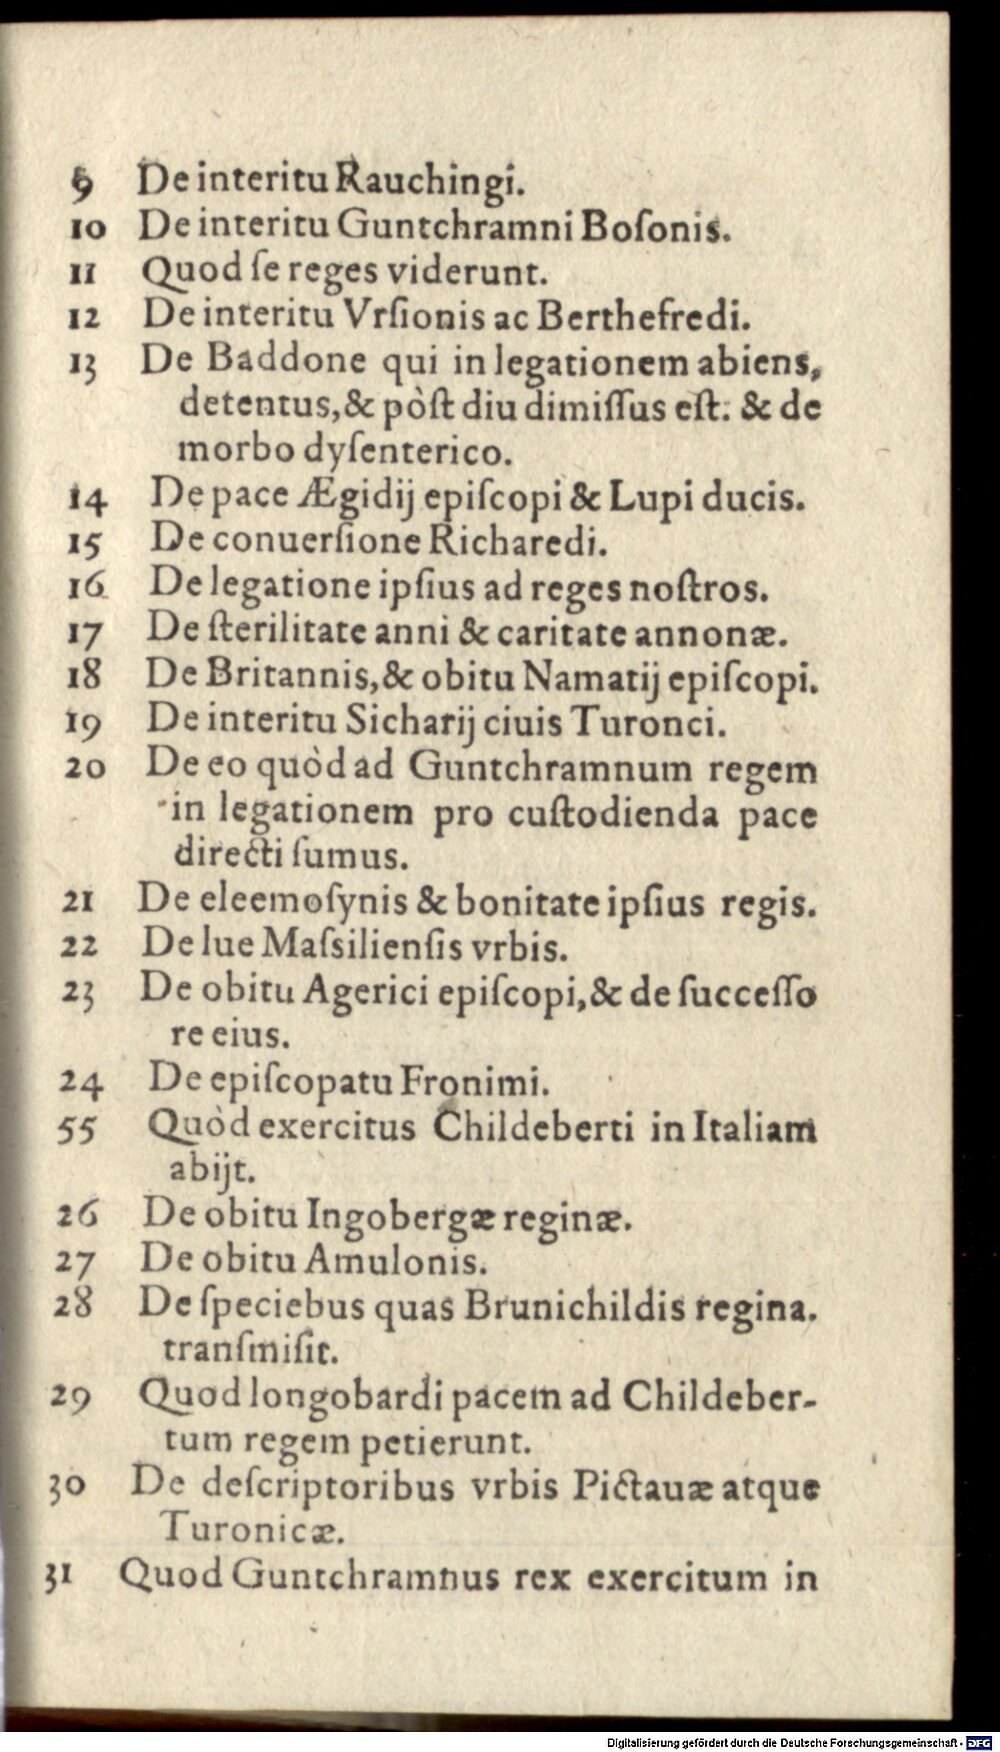 9 De interitu Rauchingi.
10 De interitu Guntchramni Boſonis.
11 Quod ſe reges viderunt.
12 De interitu Vrſionis ac Berthefredi.
13 De Baddone qui in legationem abiens,
detentus,& pòſt diu dimiſſus eſt. & de
morbo dyſenterico.
14 De pace Ægidij epiſcopi & Lupi ducis.
15 De conuerſione Richaredi.
16 De legatione ipſius ad reges noſtros.
17 De ſterilitate anni & caritate annonæ.
18 De Britannis,& obitu Namatij epiſcopi.
19 De interitu Sicharij ciuis Turonci.
20 De eo quòd ad Guntchramnum regem
in legationem pro cuſtodienda pace
directi ſumus.
21 De eleemoſynis & bonitate ipſius regis.
22 De lue Maſsilienſis vrbis.
23 De obitu Agerici epiſcopi,& de ſucceſſo
re eius.
24 De epiſcopatu Fronimi.
55 Quòd exercitus Childeberti in Italiam
abijt.
26 De obitu Ingobergæ reginæ.
27 De obitu Amulonis.
28 De ſpeciebus quas Brunichildis regina.
tranſmiſit.
29 Quod longobardi pacem ad Childeber-
tum regem petierunt.
30 De deſcriptoribus vrbis Pictauæ atque
Turonicæ.
31 Quod Guntchramnus rex exercitum in
Digitalisierung gefördert durch die Deutsche Forschungsgemeinschaft - DFG